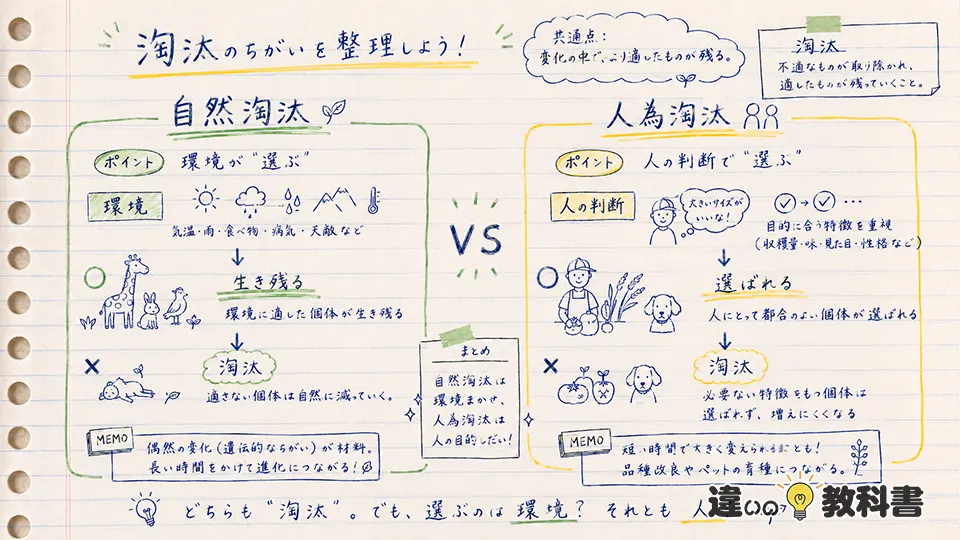 淘汰のちがいを整理しよう!
共通点:
変化の中で、より適したものが残る。
淘汰
不適なものが取り除かれ、
適したものが残っていくこと。
自然淘汰
ポイント 環境が“選ぶ”
環境
気温・雨・食べ物・病気・天敵など
生き残る
環境に適した個体が生き残る
淘汰
適さない個体は自然に減っていく。
MEMO
偶然の変化(遺伝的なちがい)が材料。
長い時間をかけて進化につながる!
VS
まとめ
自然淘汰は
環境まかせ、
人為淘汰は
人の目的しだい!
人為淘汰
ポイント 人の判断で“選ぶ”
人の判断
大きいサイズが
いいな!
目的に合う特徴を重視
(収穫量・味・見た目・性格など)
選ばれる
人にとって都合のよい個体が選ばれる
淘汰
必要ない特徴をもつ個体は
選ばれず、増えにくくなる
MEMO
短い時間で大きく変えられることも!
品種改良やペットの育種につながる。
どちらも“淘汰”。でも、選ぶのは環境? それとも人
違いの教科書